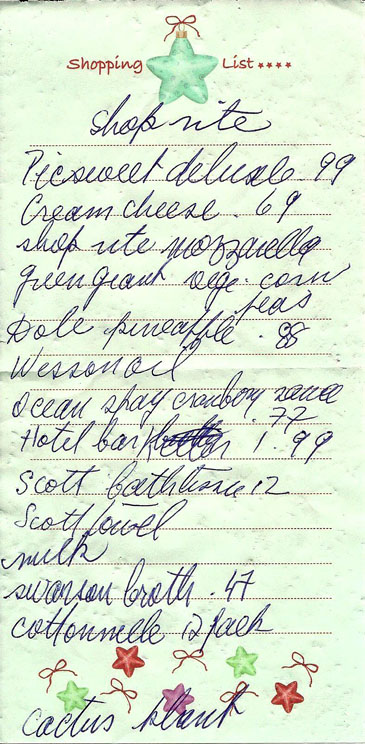 Shopping List
shop rite
Picsweet deluxe .99
Cream cheese .69
shop rite mozzarella
green giant vege. corn
peas
Dole pineapple .88
Wesson oil
Ocean spray cranbery sauce
.77
Hotel bar butter 1.99
Scott bathtissue 12
Scott towel
milk
swanson broth .47
cottonnelle 12 pack
cactus plant